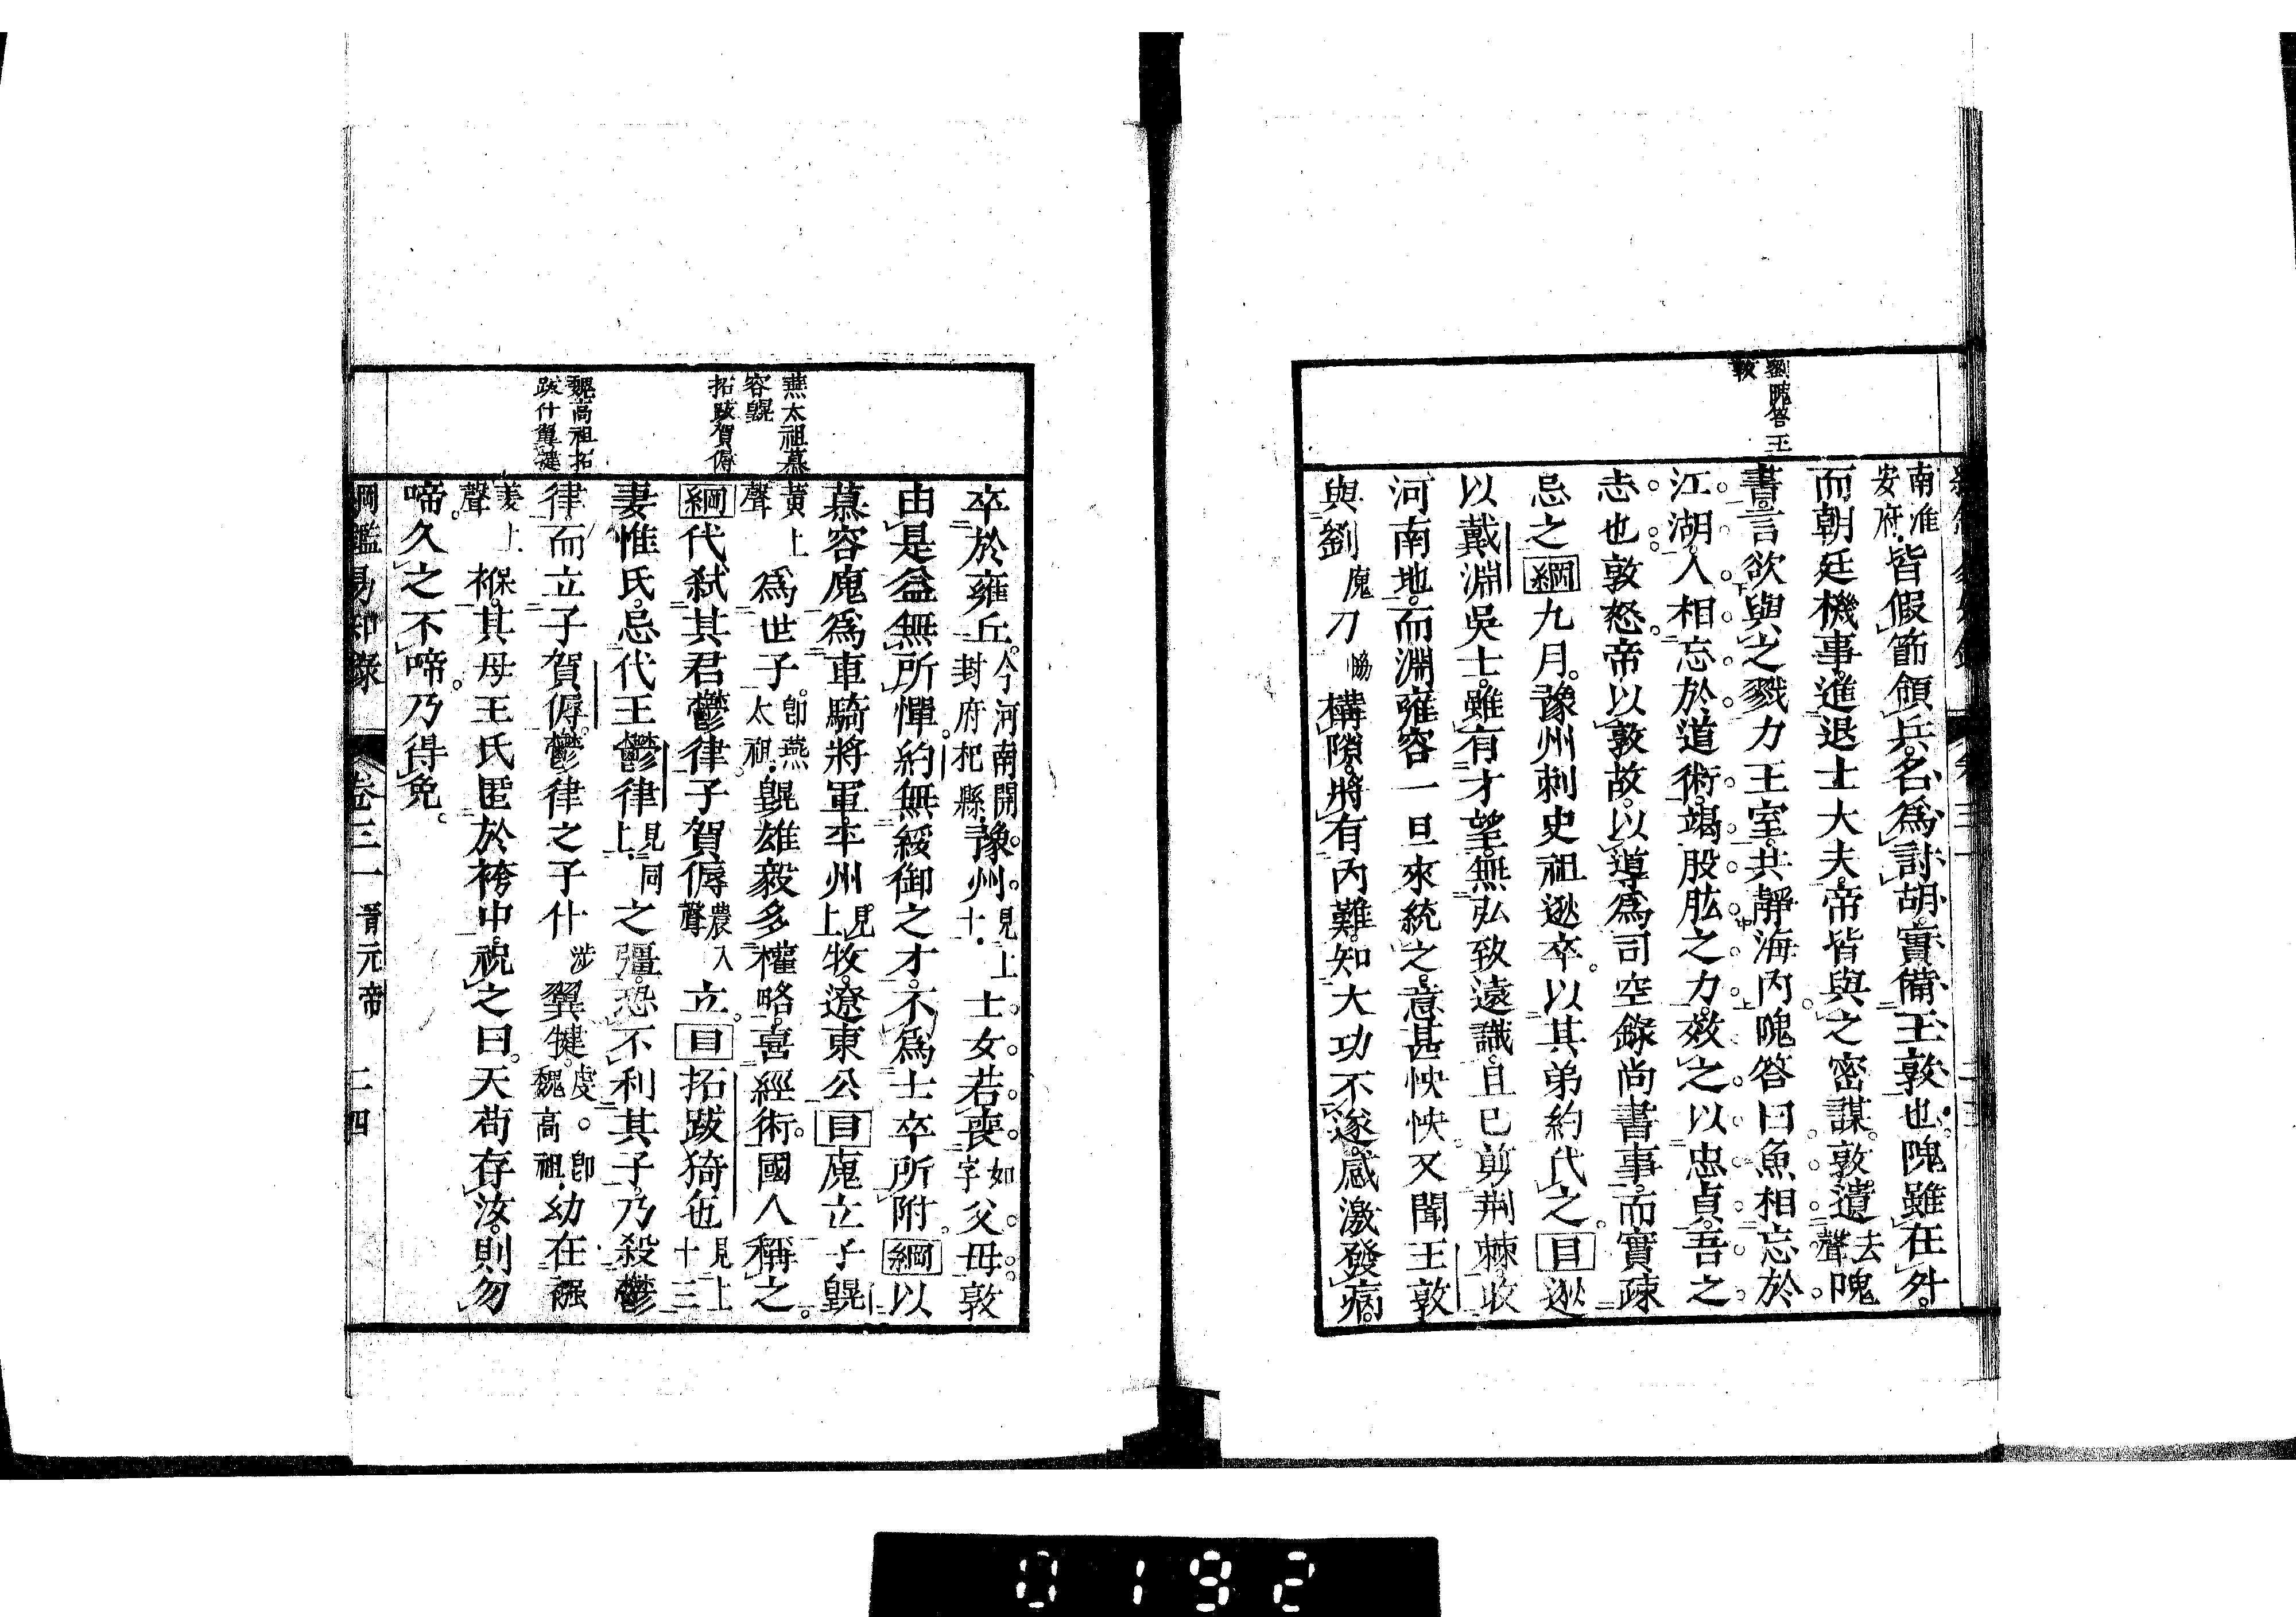 劉隗答王
敦
南淮
安府
皆假節領兵名爲討胡實備王敦也隗雖在外
而朝廷機事進退士大夫帝皆與之密謀敦遺去聲隗
書言欲與之戮力王室共靜海內隗答曰魚相忘於
江湖人相忘於道術竭股肱之力效之以忠貞吾之
志也敦怒帝以敦故以導爲司空錄尚書事而實疎
忌之綱九月豫州刺史祖逖卒以其弟約代之目逖
以戴淵吳士雖有才望無弘致遠識且已剪荆棘收
河南地而淵雍容一旦來統之意甚怏怏又聞王敦
與劉隗刀協構隙將有內難知大功不遂感激發病
燕太祖慕
容皝
拓跋賀傉
魏高祖拓
跋什翼犍
卒於雍丘今河南開封府杞縣豫州見上十士女若喪如字父母敦
由是益無所憚約無綏御之才不爲士卒所附綱以
慕容廆爲車騎將軍平州見上牧遼東公目廆立子皝
黃上聲爲世子卽燕太祖皝雄毅多權略喜經術國人稱之
綱代弒其君鬱律子賀傉農入聲立目拓跋猗㐌見上十三
妻惟氏忌代王鬱律見同上之彊恐不利其子乃殺鬱
律而立子賀傉鬱律之子什涉翼犍虔卽魏高祖幼在襁
羌上聲褓其母王氏匿於袴中祝之曰天苟存汝則勿
啼久之不啼乃得免
綱鑑易知錄 卷三一 晉元帝 二四